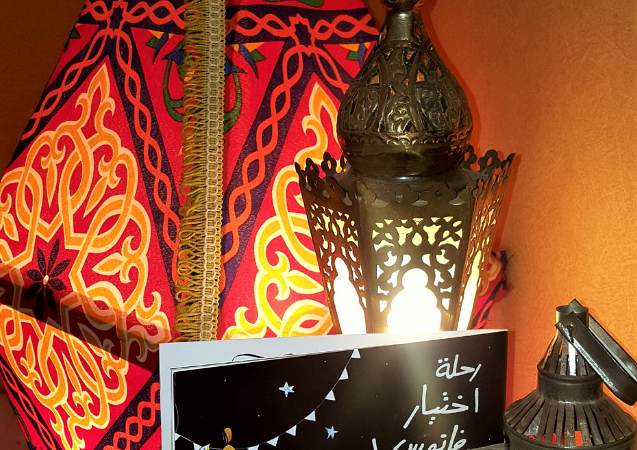 رحلة
اختيار
فانوس